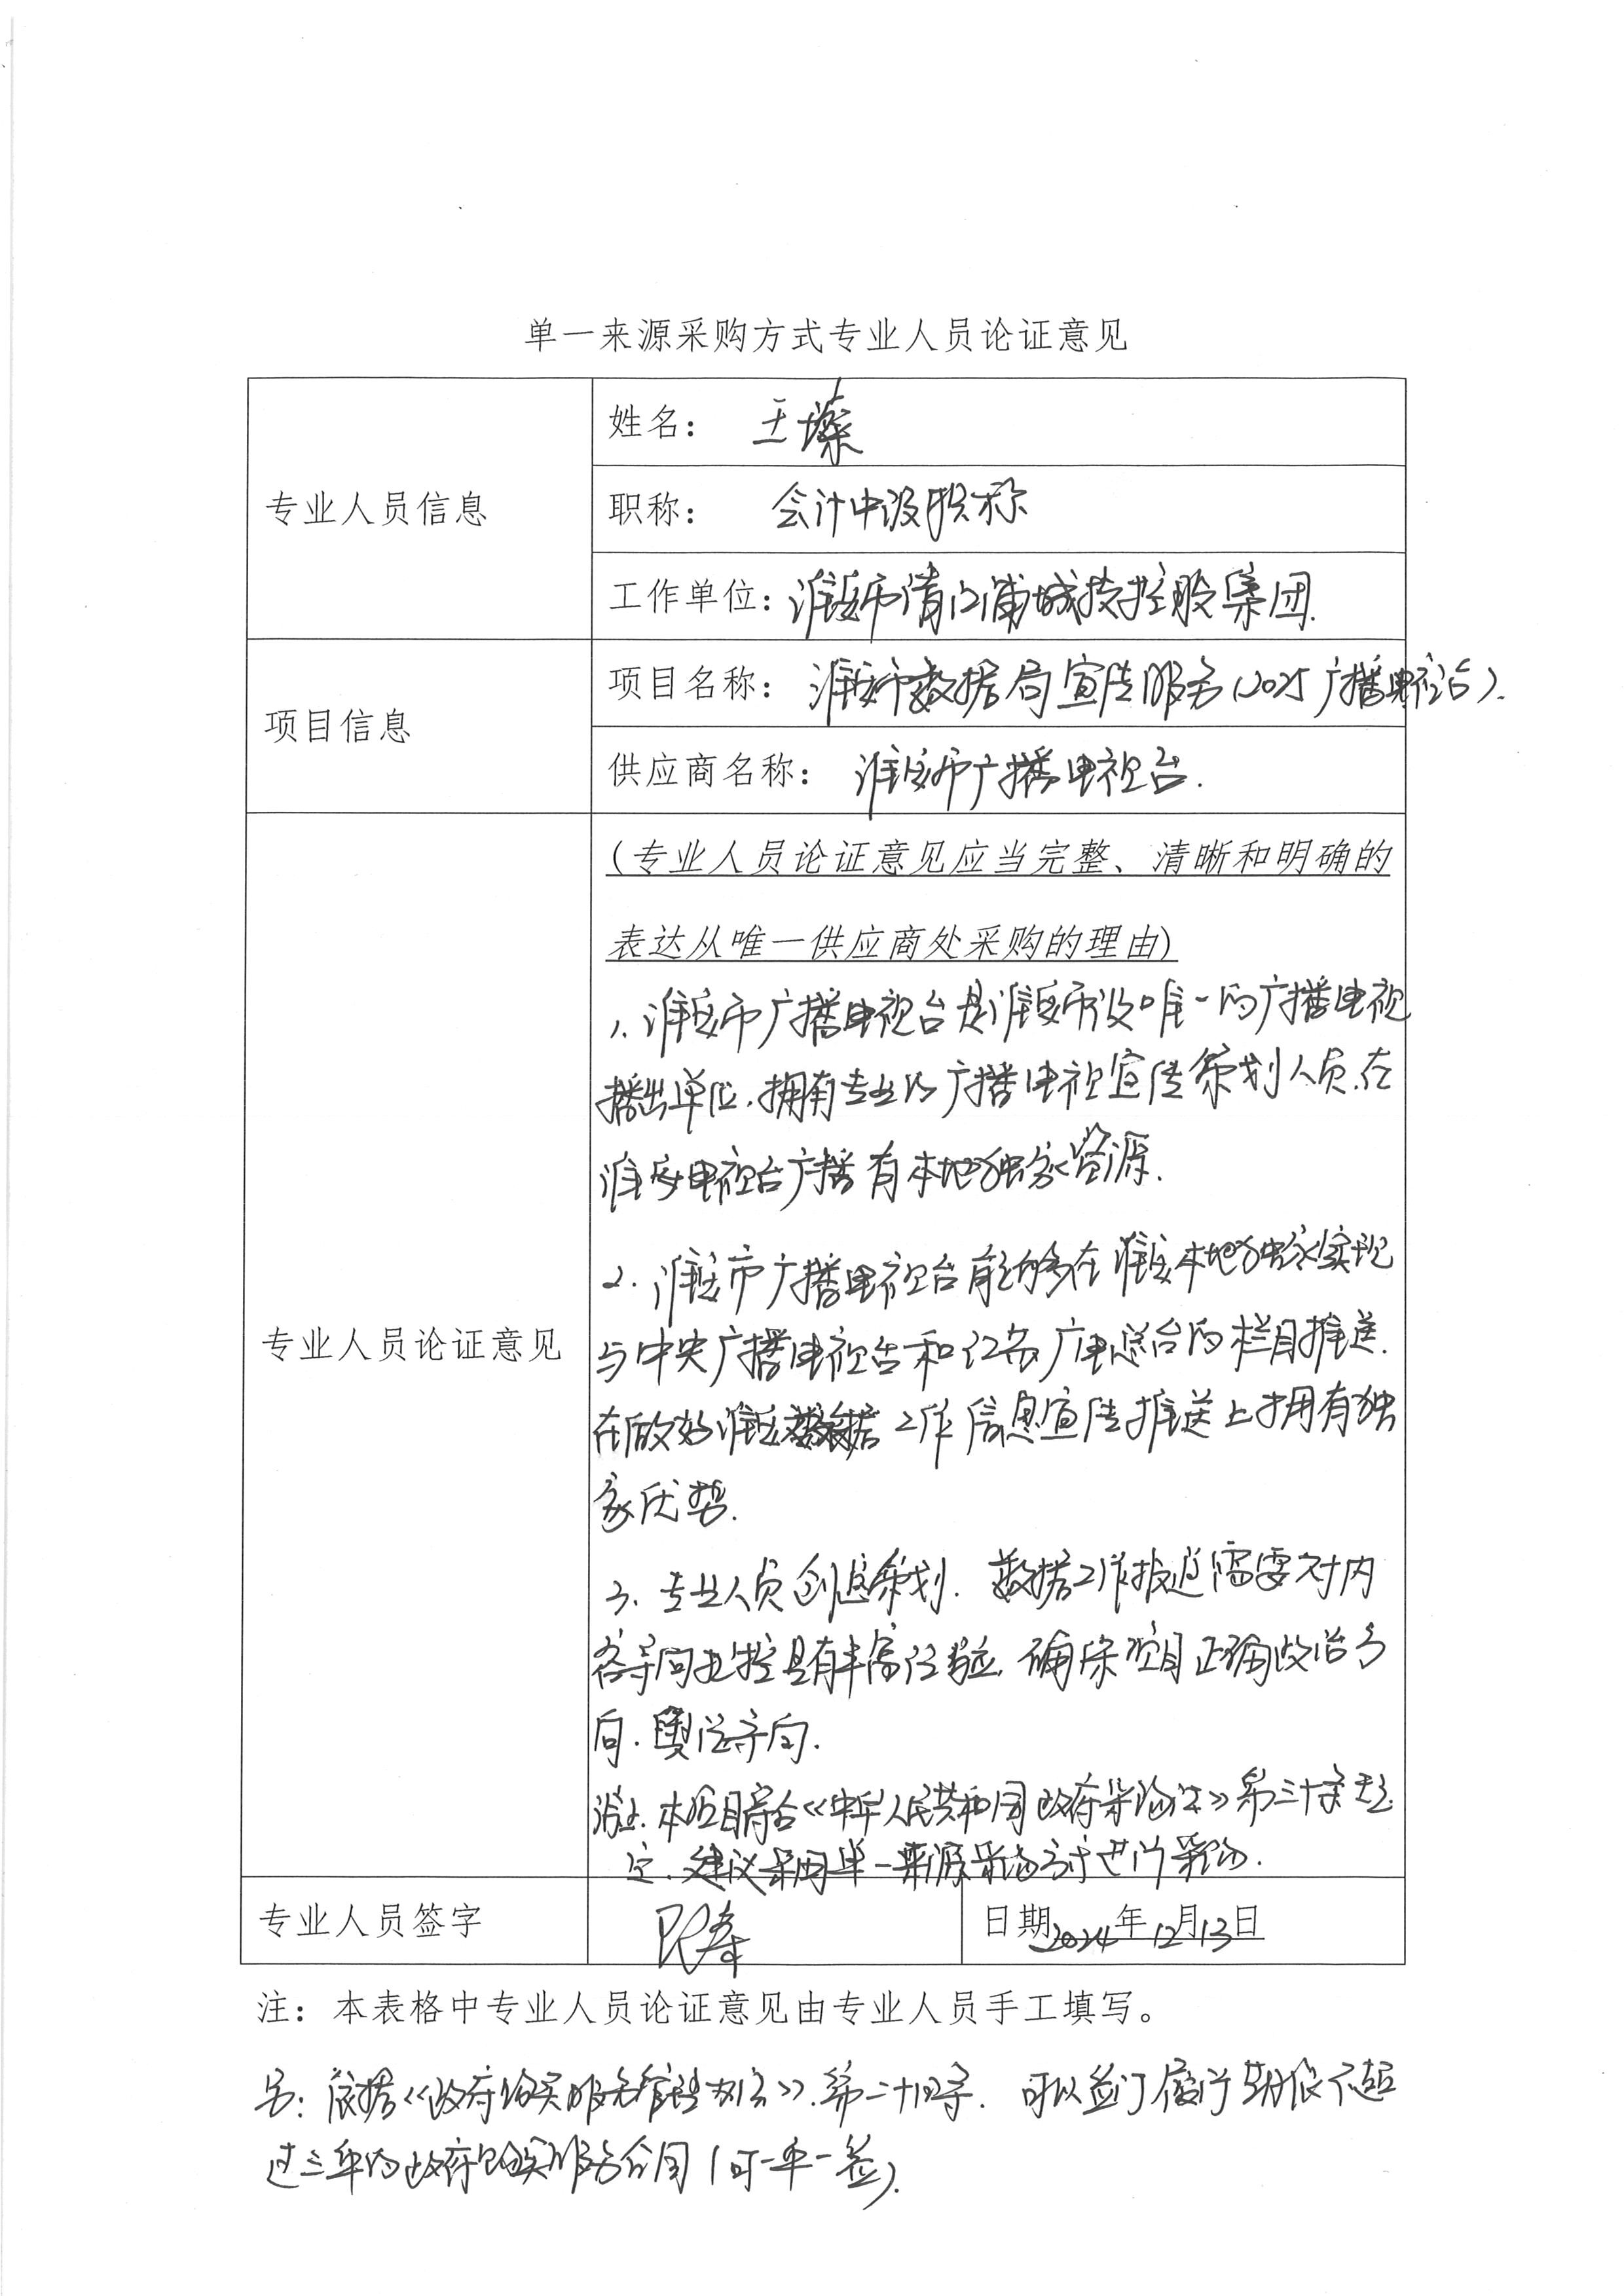 单一来源采购方式专业人员论证意见
专业人员信息
姓名：王璨
职称：会计中级职称
工作单位：淮安市清江浦城投控股集团.
项目信息
项目名称：淮安市数据局宣传服务(2025广播电视台).
供应商名称：淮安市广播电视台.
专业人员论证意见
(专业人员论证意见应当完整、清晰和明确的
表达从唯一供应商处采购的理由)
1.淮安市广播电视台是淮安市设唯一的广播电视
播出单位,拥有专业的广播电视宣传策划人员,在
淮安电视台广播有本地独家资源.
2.淮安市广播电视台能够在淮安本地独家实现
与中央广播电视台和江苏广电总台的栏目推送.
在做好淮安数据工作信息宣传推送上拥有独
家优势.
3.专业人员创意策划.数据工作报道需要对内
容导向把控具有丰富经验,确保项目正确政治方
向.舆论导向.
本项目符合《中华人民共和国政府采购法》第三十一条规
定,建议采用单一来源采购方式进行采购.
专业人员签字
日期2024年12月13日
注：本表格中专业人员论证意见由专业人员手工填写。
另:依据《政府购买服务管理办法》.第二十四条.可以签订履行期限不超
过三年的政府购买服务合同(可一年一签).